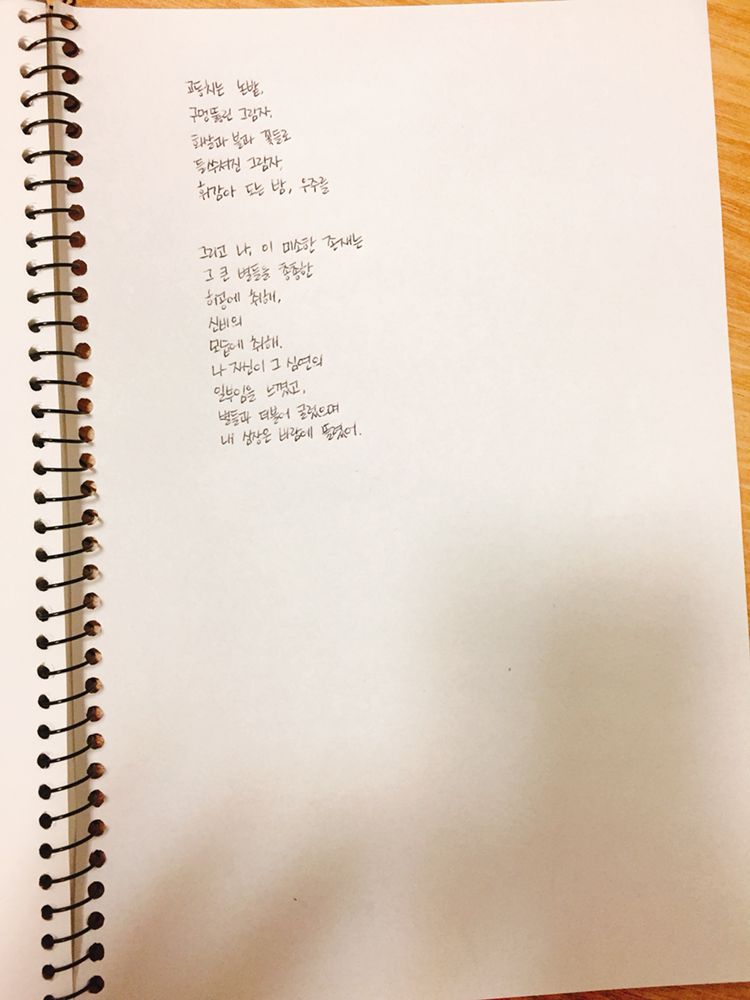 고동치는 논밭,
구멍뚫린 그림자,
화살과 불과 꽃들로
들쑤셔진 그림자,
휘감아 도는 밤, 우주를
그리고 나, 이 미소한 존재는
그 큰 별들을 총총한
허공에 취해,
신비의
모습에 취해.
나 자신이 그 심연의
일부임을 느꼈고,
별들과 더불어 굴렀으며
내 심장은 바람에 풀렸어.